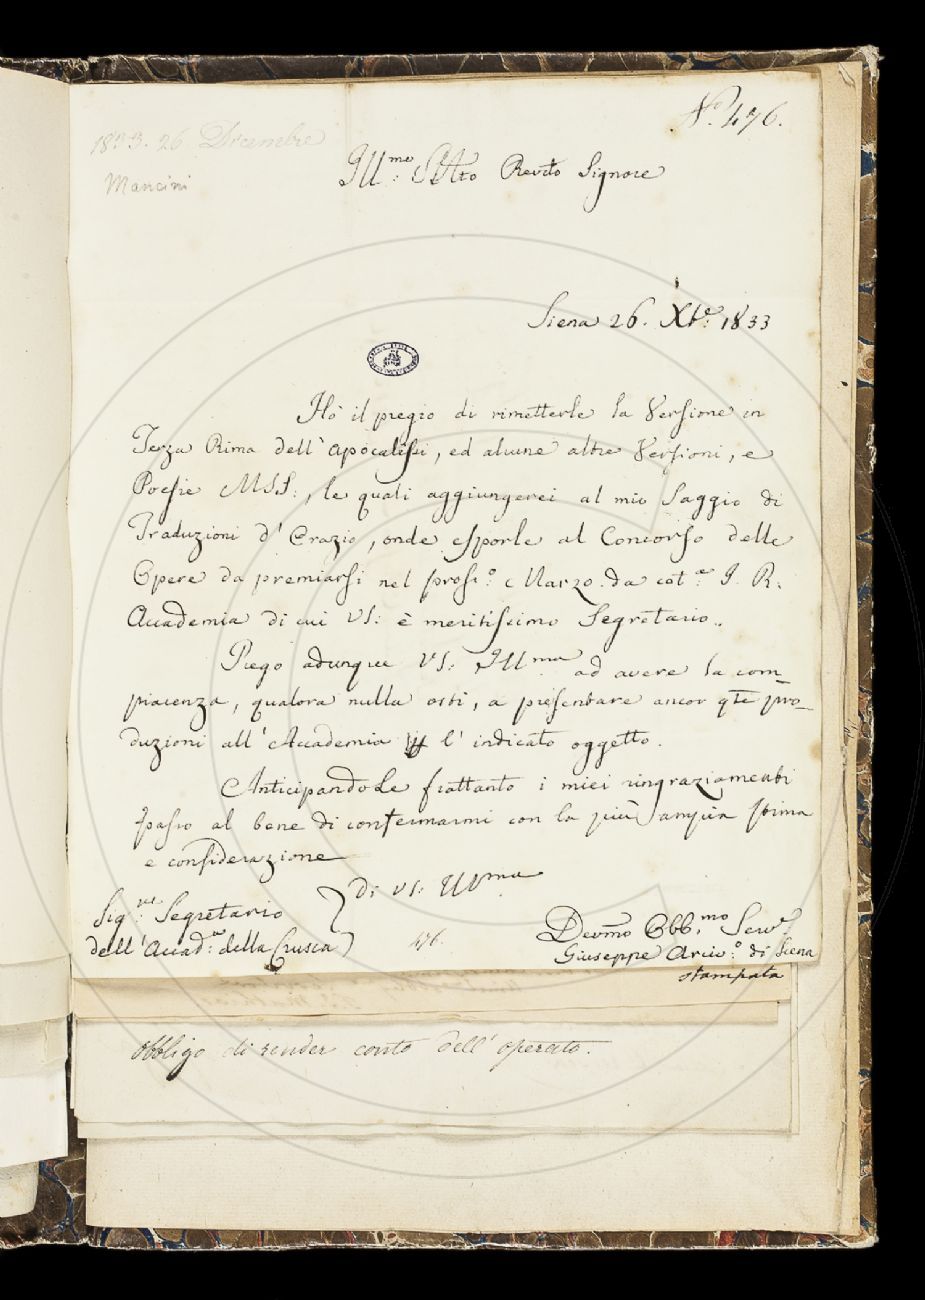 N.° 476.
1833. 26 Dicembre
Mancini
Ill.mo Revdo Signore
Siena 26. Xb.e 1833
Hò il pregio di rimetterle la Versione in
Terza Rima dell'Apocalissi, ed alcune altre Versioni, e
Poesie MSS:, le quali aggiungerei al mio Saggio di
Traduzioni d'Orazio, onde esporle al Concorso delle
Opere da premiarsi nel pross.° Marzo da cot.a I. R.
Accademia di cui VS: è meritissimo Segretario.
Prego adunque VS: Ill.ma ad avere la com-
piacenza, qualora nulla osti, a presentare ancor qte pro-
duzioni all'Accademia l'indicato oggetto.
Anticipandole frattanto i miei ringraziamenti
passo al bene di confermarmi con la più ampia stima
e considerazione
di VS: Ill.ma
Sig.re Segretario
dell'Accad.a della Crusca
476.
Devmo Obb.mo Serv.e
Giuseppe Arciv.° di Siena
stampata
obbligo di render conto dell'operato.